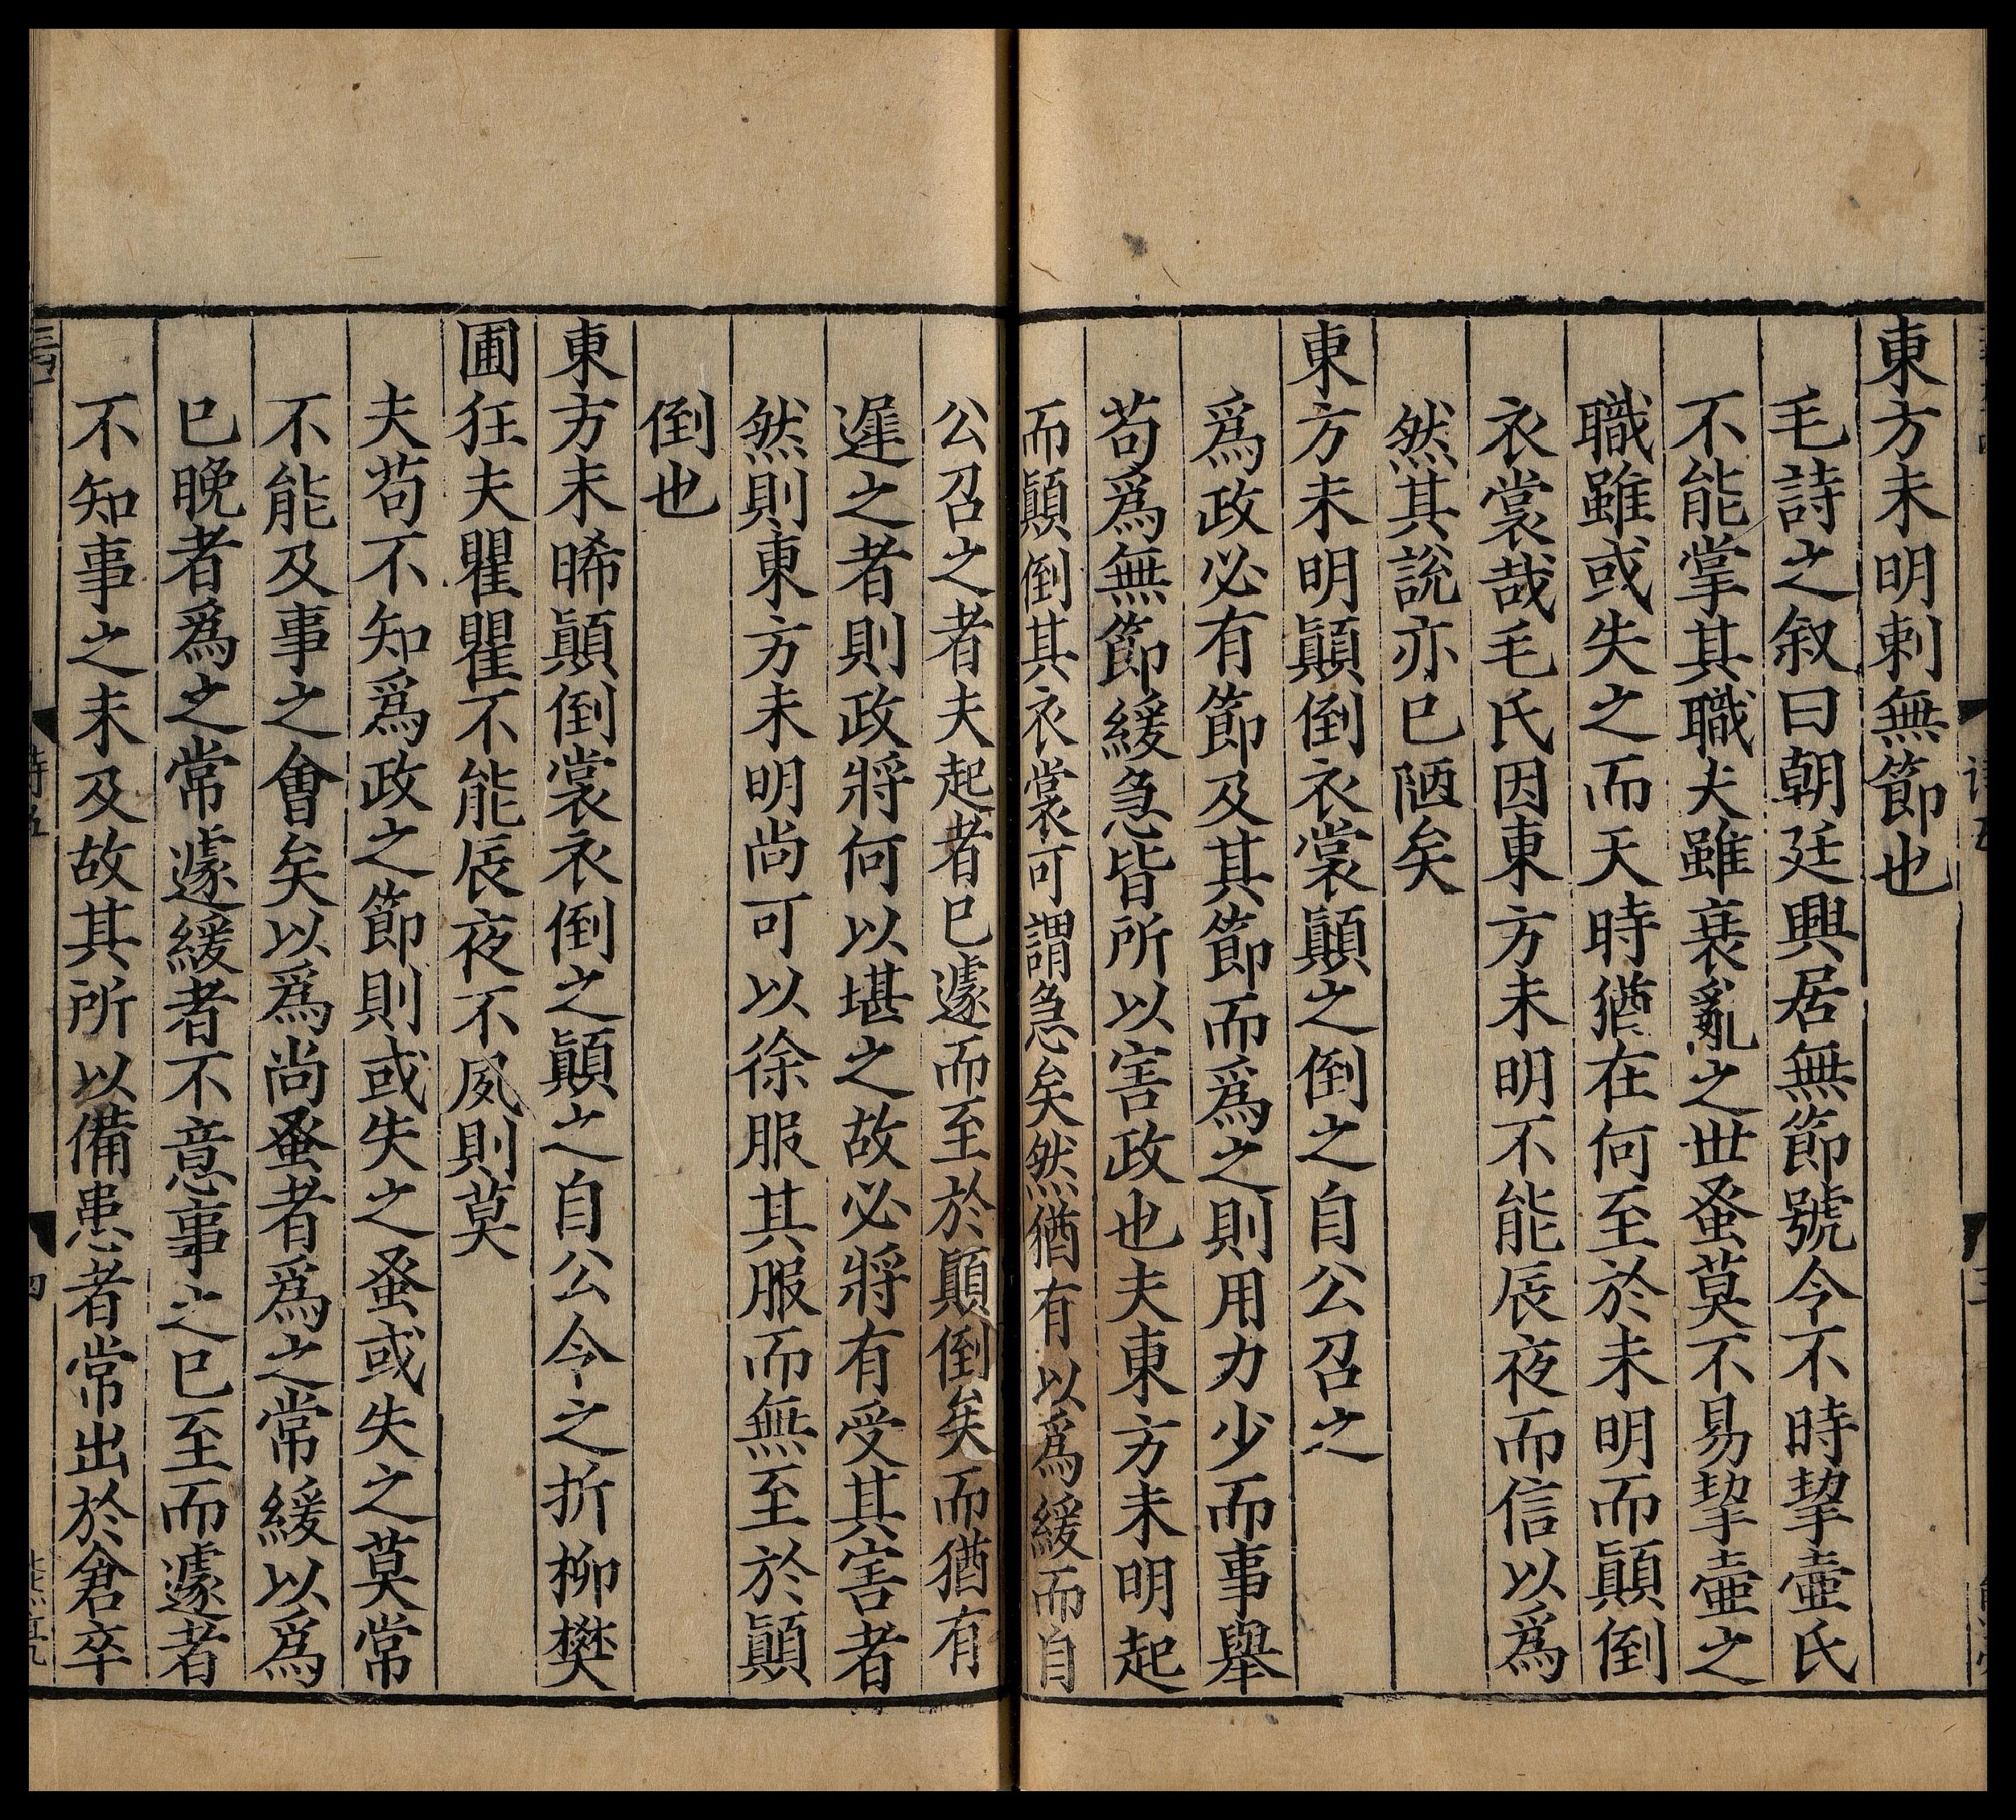 東方未明刺無節也
毛詩之叙曰朝廷興居無節號令不時挈壷氏
不能掌其職夫雖衰亂之世蚤莫不易挈壷之
職雖或失之而天時猶在何至於未明而顛倒
衣裳哉毛氏因東方未明不能辰夜而信以爲
然其說亦已陋矣
東方未明顛倒衣裳顛之倒之自公召之
爲政必有節及其節而爲之則用力少而事舉
苟爲無節緩急皆所以害政也夫東方未明起
而顛倒其衣裳可謂急矣然猶有以爲緩而自
公召之者夫起者已遽而至於顛倒矣而猶有
遲之者則政將何以堪之故必將有受其害者
然則東方未明尚可以徐服其服而無至於顛
倒也
東方未晞顛倒裳衣倒之顛之自公令之折柳樊
圃狂夫瞿瞿不能辰夜不夙則莫
夫苟不知爲政之節則或失之蚤或失之莫常
不能及事之會矣以爲尚蚤者爲之常緩以爲
已晚者爲之常遽緩者不意事之已至而遽者
不知事之未及故其所以備患者常出於倉卒